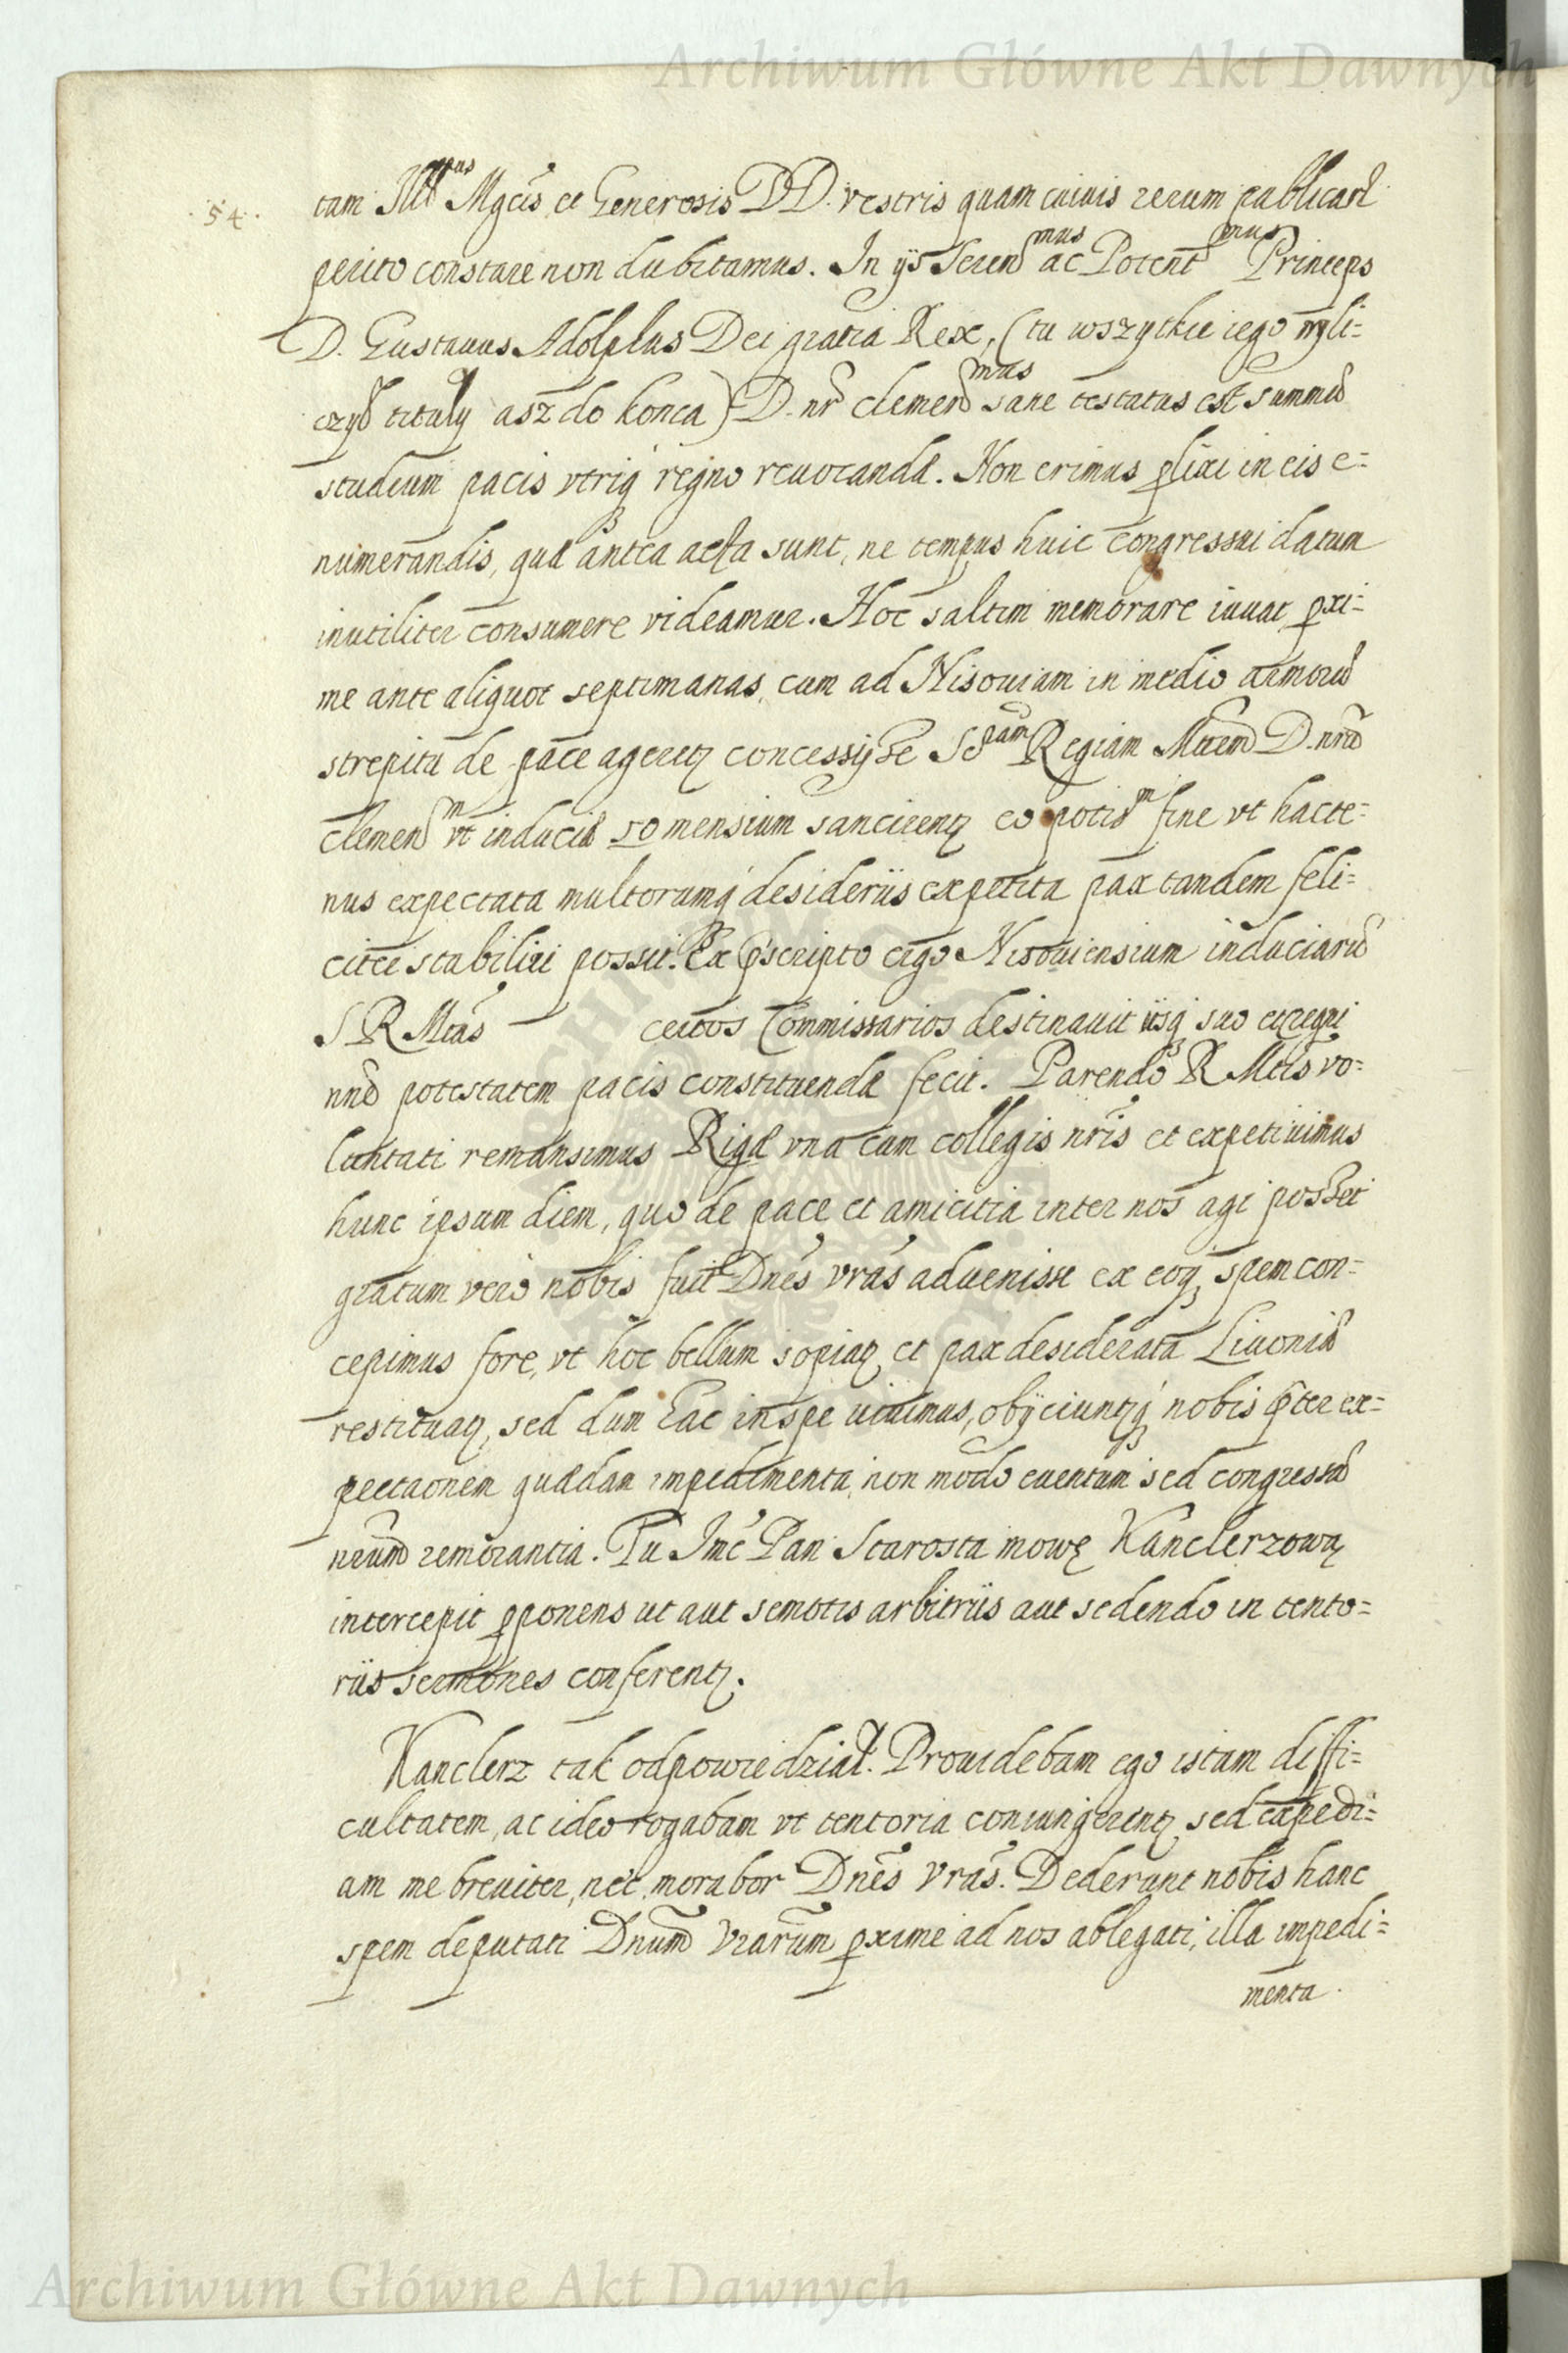 Archiwum Główne Akt Dawnych
54.
tam Ill^mus Mgcis et Generosis DD. vestris quam cuiuis rerum publicarū
perito constare non dubitamus. In ijs Seren^mus ac Potent^mus Princeps
D. Gustauus Adolphus Dei gratia Rex, (tu wszytkie iego wyli=
czył tituły asz do konca) D. nr̄ clemen^mus sane testatus est summū
studium pacis vtriq regno reuocandæ. Non erimus ꝓlixi in eis e=
numerandis, quæ antea acta sunt, ne tempus huic congressui datum
inutiliter consumere videamur. Hoc saltim memorare iuuat ꝓxi=
me ante aliquot septimanas, cum ad Nisouiam in medio armorū
strepitu de pace ageretꝫ concessysse S^dam Regiam Mtem D. nrā
clemen^m vt induciæ 10 mensium sancirentꝫ eo potis^m fine vt hacte=
nus expectata multorumq desideriis expetita pax tandem feli=
citer stabiliri possit. Ex pscripto ergo Nisouiensium induciarū
S R Mtas certos Commissarios destinauit iisq suo et regni
nn̄o potestatem pacis constituendæ fecit. Parendo R Mtis vo=
luntati remansimus Rigæ vna cum collegis nr̄is et expetiuimus
hunc ipsum diem, quo de pace et amicitia inter nos agi posset
gratum vero nobis fuit Dnēs vrās aduenisse ex eoq, spem con=
cepimus fore, vt hoc bellum sopiatꝫ et pax desiderata Liuoniæ
restituatꝫ, sed dum hac in spe viuimus, obijciuntꝫq nobis p̄ter ex=
pectaonem quædam impedimenta, non modo euentum sed congressū
nrum̄ remorantia. Tu Jmc Pan Starosta mowę Kanclerzową
intercepit ꝓponens ut aut semotis arbitriis aut sedendo in tento=
riis sermones conferentꝫ.
Kanclerz tak odpowiedział. Prouidebam ego istam diffi=
cultatem, ac ideo rogabam vt tentoria coniungerentꝫ, sed expedi=
am me breuiter, nec morabor Dnēs Vrās. Dederunt nobis hanc
spem deputati Dnum̄ Vrarum̄ ꝓxime ad nos ablegati, illa impedi=
menta.
Archiwum Główne Akt Dawnych